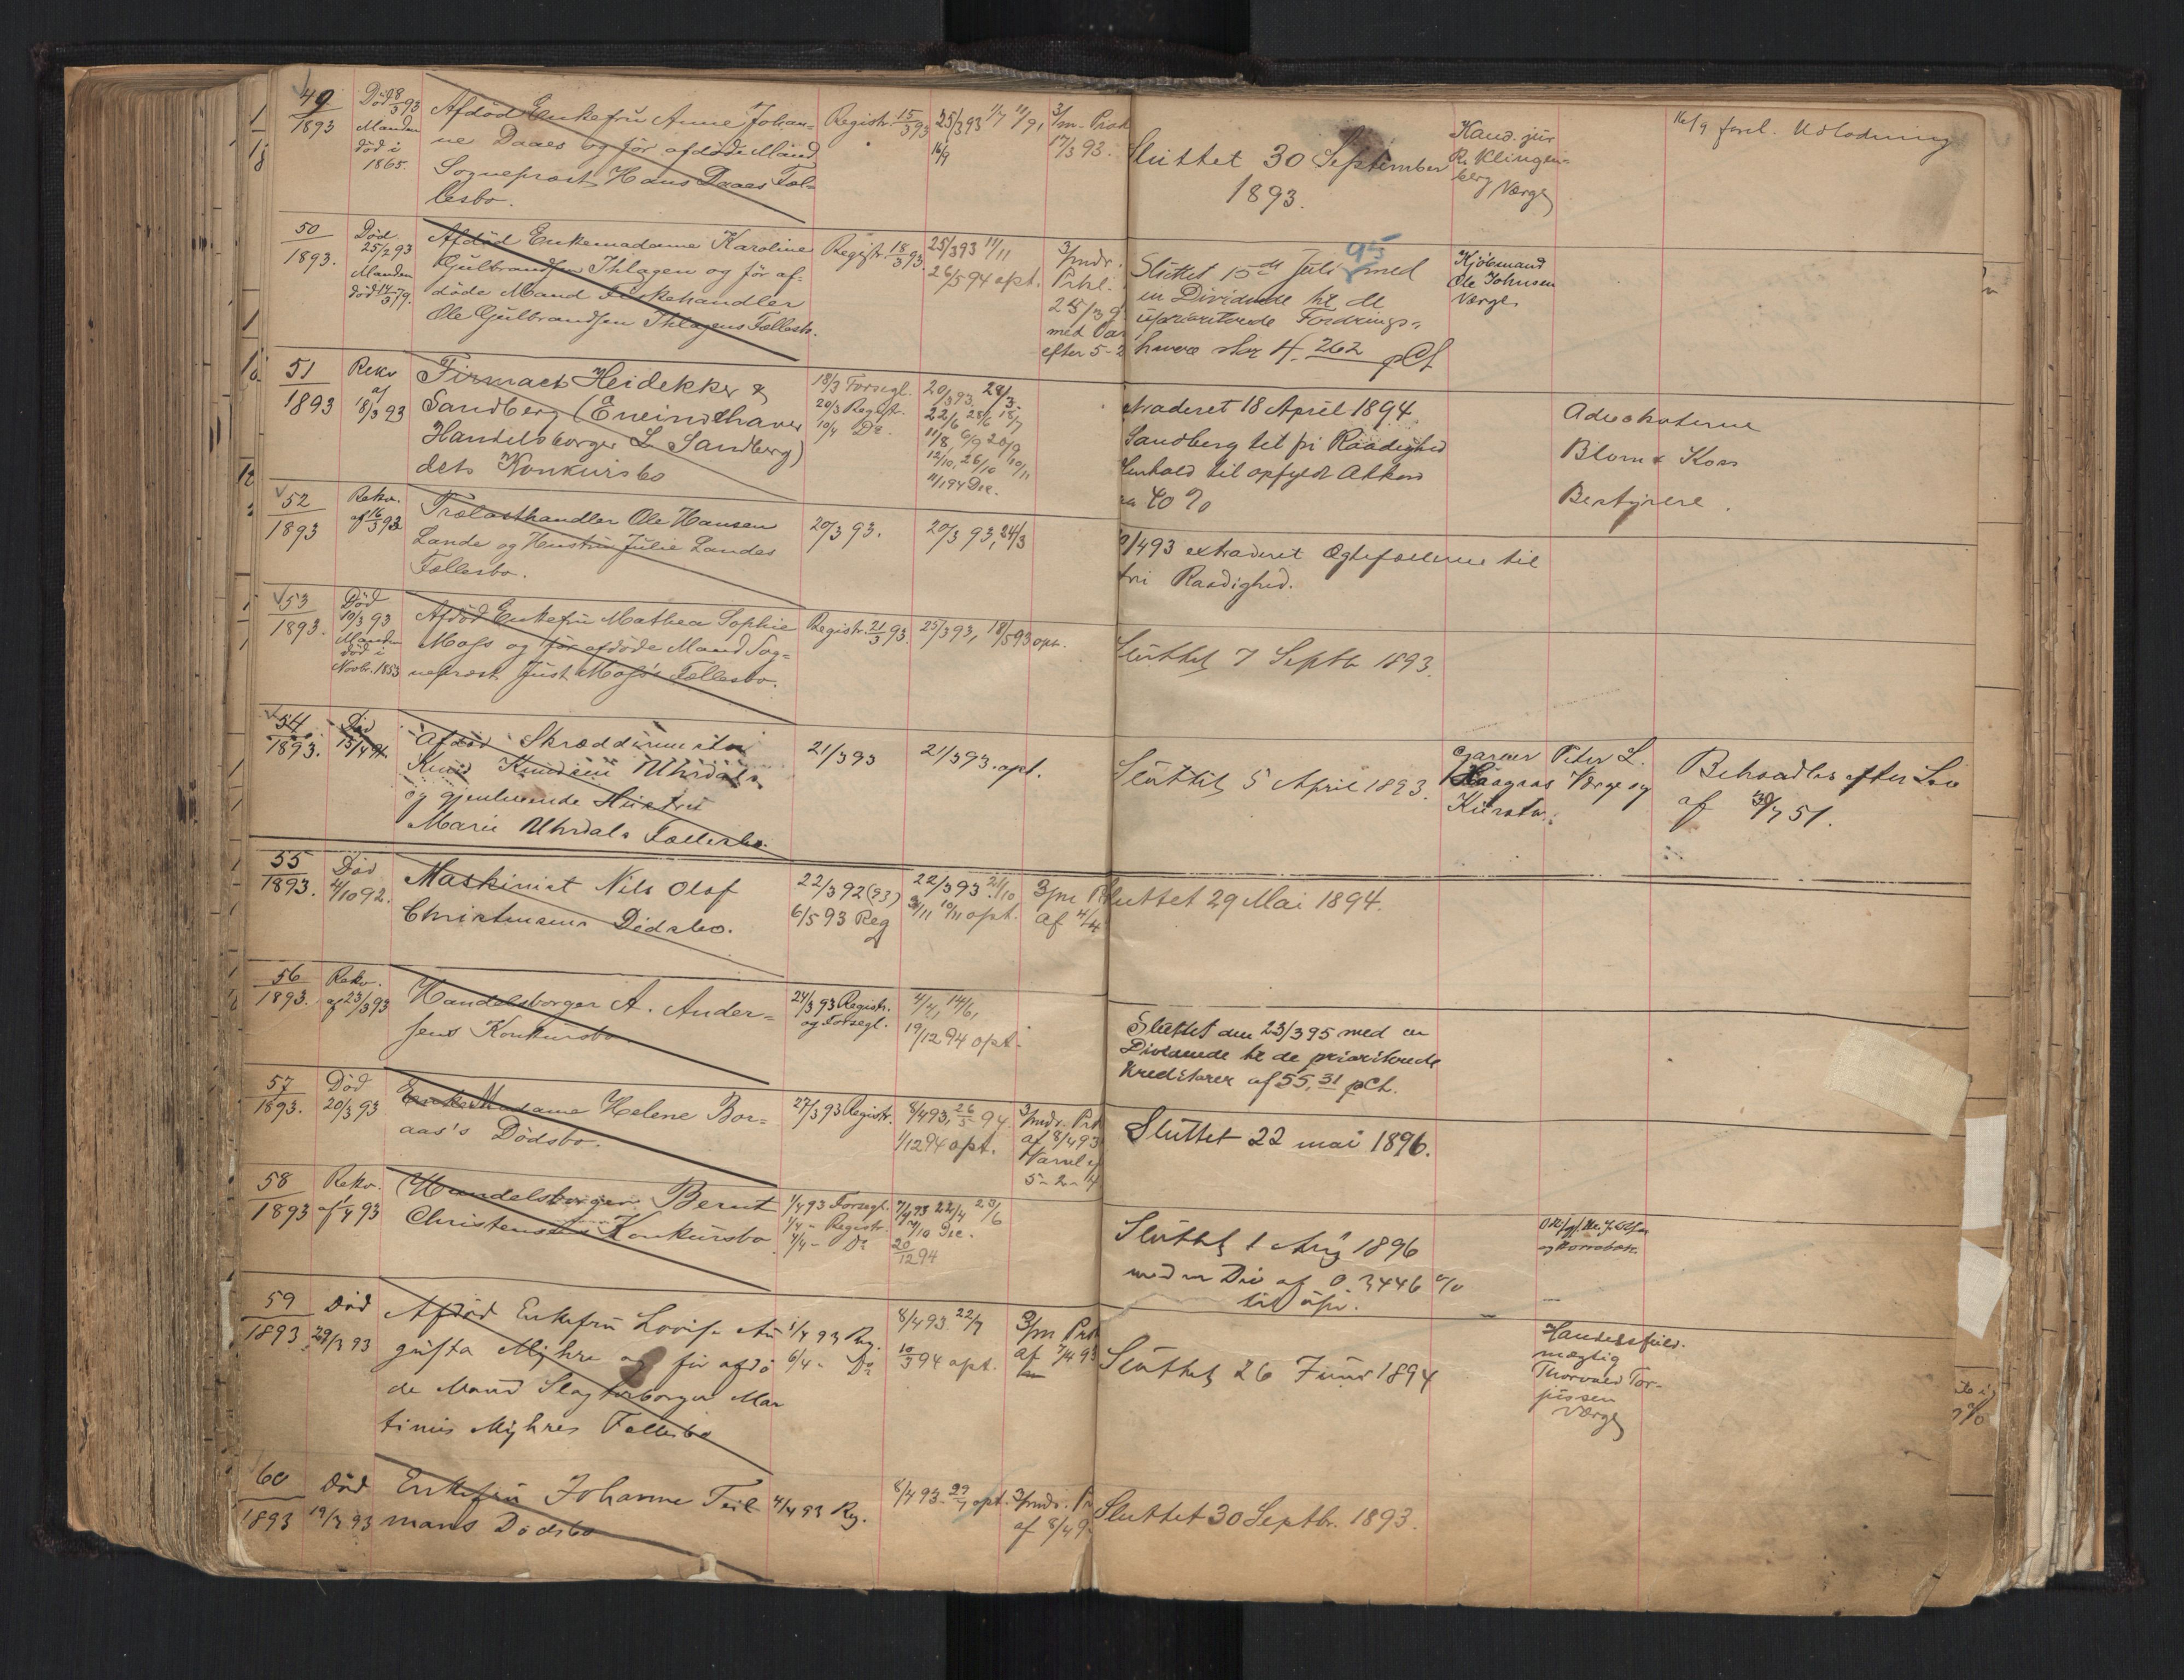 49
1893
Död 8/3 93
Manden
död i
1865.
Afdöd Enkefru Anne Johan=
ne Daaes og för afdöde Mand
Sogneprost Hans Daaes Fæl=
lesbo.
Registr. 15/3 93
25/3 93 11/7 11/9,
16/9
3/m. Prok
17/3 93.
Sluttet 30 September
1893.
Kand. jur
R. Klingen=
berg Værge
16/9 forel. Udlodning
50
1893.
Död
25/2 93
Manden
död 14/3 79.
Afdöd Enkemadame Karoline
Gulbrandsen Ihlagen og för af=
döde Mand Fiskehandler
Ole Gulbrandsen Ihlagens Fællesbo.
Registr. 18/3 93.
25/3 93 11/11
26/5 94 opt.
3/mdr.
Prkl.
25/3 9
med Var
efter 5-2
95
Sluttet 15de Juli med
en Dividende til de
uprioriterede Fordrings=
havere stor 4.262 pCt
Kjöbmand
Ole Johnsen
Værge
51
1893
Rekv
af
18/3 93
Firmaet Heidekker &
Sandberg (Eneindehaver
Handelsborger L. Sandberg)
dets Konkursbo
18/3 Forsegl.
20/3 Regist.
10/4 Do.
20/3 93. 28/3.
22/6 28/6 18/7
11/8, 6/9 20/9
12/10, 26/10 10/11
11/1 94 Dec.
xtraderet 18 April 1894
Sandberg tel fri Raadighed
Henhold til opfyldt Akkord
paa 40 %
Advokaterne
Blom & Koss
Bestyrere.
52
1893
Rekv.
af 16/3 93
Trælasthandler Ole Hansen
Lande og Hustru Julie Landes
Fællesbo.
20/3 93.
20/3 93, 24/3
/4 93 extraderet Ægtefællerne til
fri Raadighed.
53
1893.
Död
10/3 93
Manden
död i
Novbr. 1853
Afdöd Enkefru Mathea Sophie
Moss og för afdöde Mand Sog=
neprest Just Moss's Fællesbo.
Registr. 21/3 93.
25/3 93, 18/5 93 opt.
Sluttet 7 Septb 1893.
54
1893.
Död
15/4 91.
Afdöd Skræddermester
Knud Knudsen Uhrdals
og gjenlevende Hustru
Marie Uhrdals Fællesbo.
21/3 93
21/3 93. opt.
Sluttet 5 April 1893.
Garver Peter L.
Haagaas Værge og
Kurator.
Behandles efter Lov
af 30/7 51.
55
1893.
Död
4/10 92.
Maskinist Nils Olaf
Christensens Dödsbo.
22/3 92 (93)
6/5 93 Reg
22/3 93. 21/10
10/11 opt.
3/m Pr
af 4/4
luttet 29 Mai 1894.
56
1893.
Rekv.
af 23/3 93
Handelsborger A. Ander=
sens Konkursbo
24/3 93 Registr.
og Forsegl.
4/4, 14/6,
19/12 94 opt.
Sluttet den 23/3 95 med en
Dividende til de prioriterede
Kreditorer af 55.31 pCt.
57
1893.
Död
20/3 93
Enke Madame Helene Bor=
aas's Dödsbo.
27/3 93 Registr.
8/4 93, 26/5 94.
1/12 94 opt.
3/mdr. Prk
af 8/4 93
Varsel ef
5-2-4
Sluttet 22 mai 1896.
58
1893
Rekv.
af 1/4 93
Handelsborger Bernt
Christensens Konkursbo
1/4 93 Forsegl.
1/4 - Registr.
4/4 - Do
7/4 93 22/4 23/6
7/10 Dec.
20/12 94
Sluttet 1 Aug 1896
med en Div af 0.3446 %
til upr.
59
1893
Död
29/3 93
Afdöd Enkefru Lovise Au
gusta Myhre og för afdö
de Mand Slagterborger Mar
tinus Myhres Fællesbo
1/4 93 Reg.
6/4 - Do
8/4 93. 22/7
10/3 94 opt.
3/m Prk
af 7/4 93
Sluttet 26 Juni 1894
Handelsfuld=
mægtig
Thorvald Tor=
jussen
Værge
60
1893
Död
19/3 93
Enkefru Johanne Teil
mans Dödsbo
4/4 93 Reg.
8/4 93. 29/7 opt.
3/mdr. Pr
af 8/4 9
Sluttet 30 Septbr. 1893.